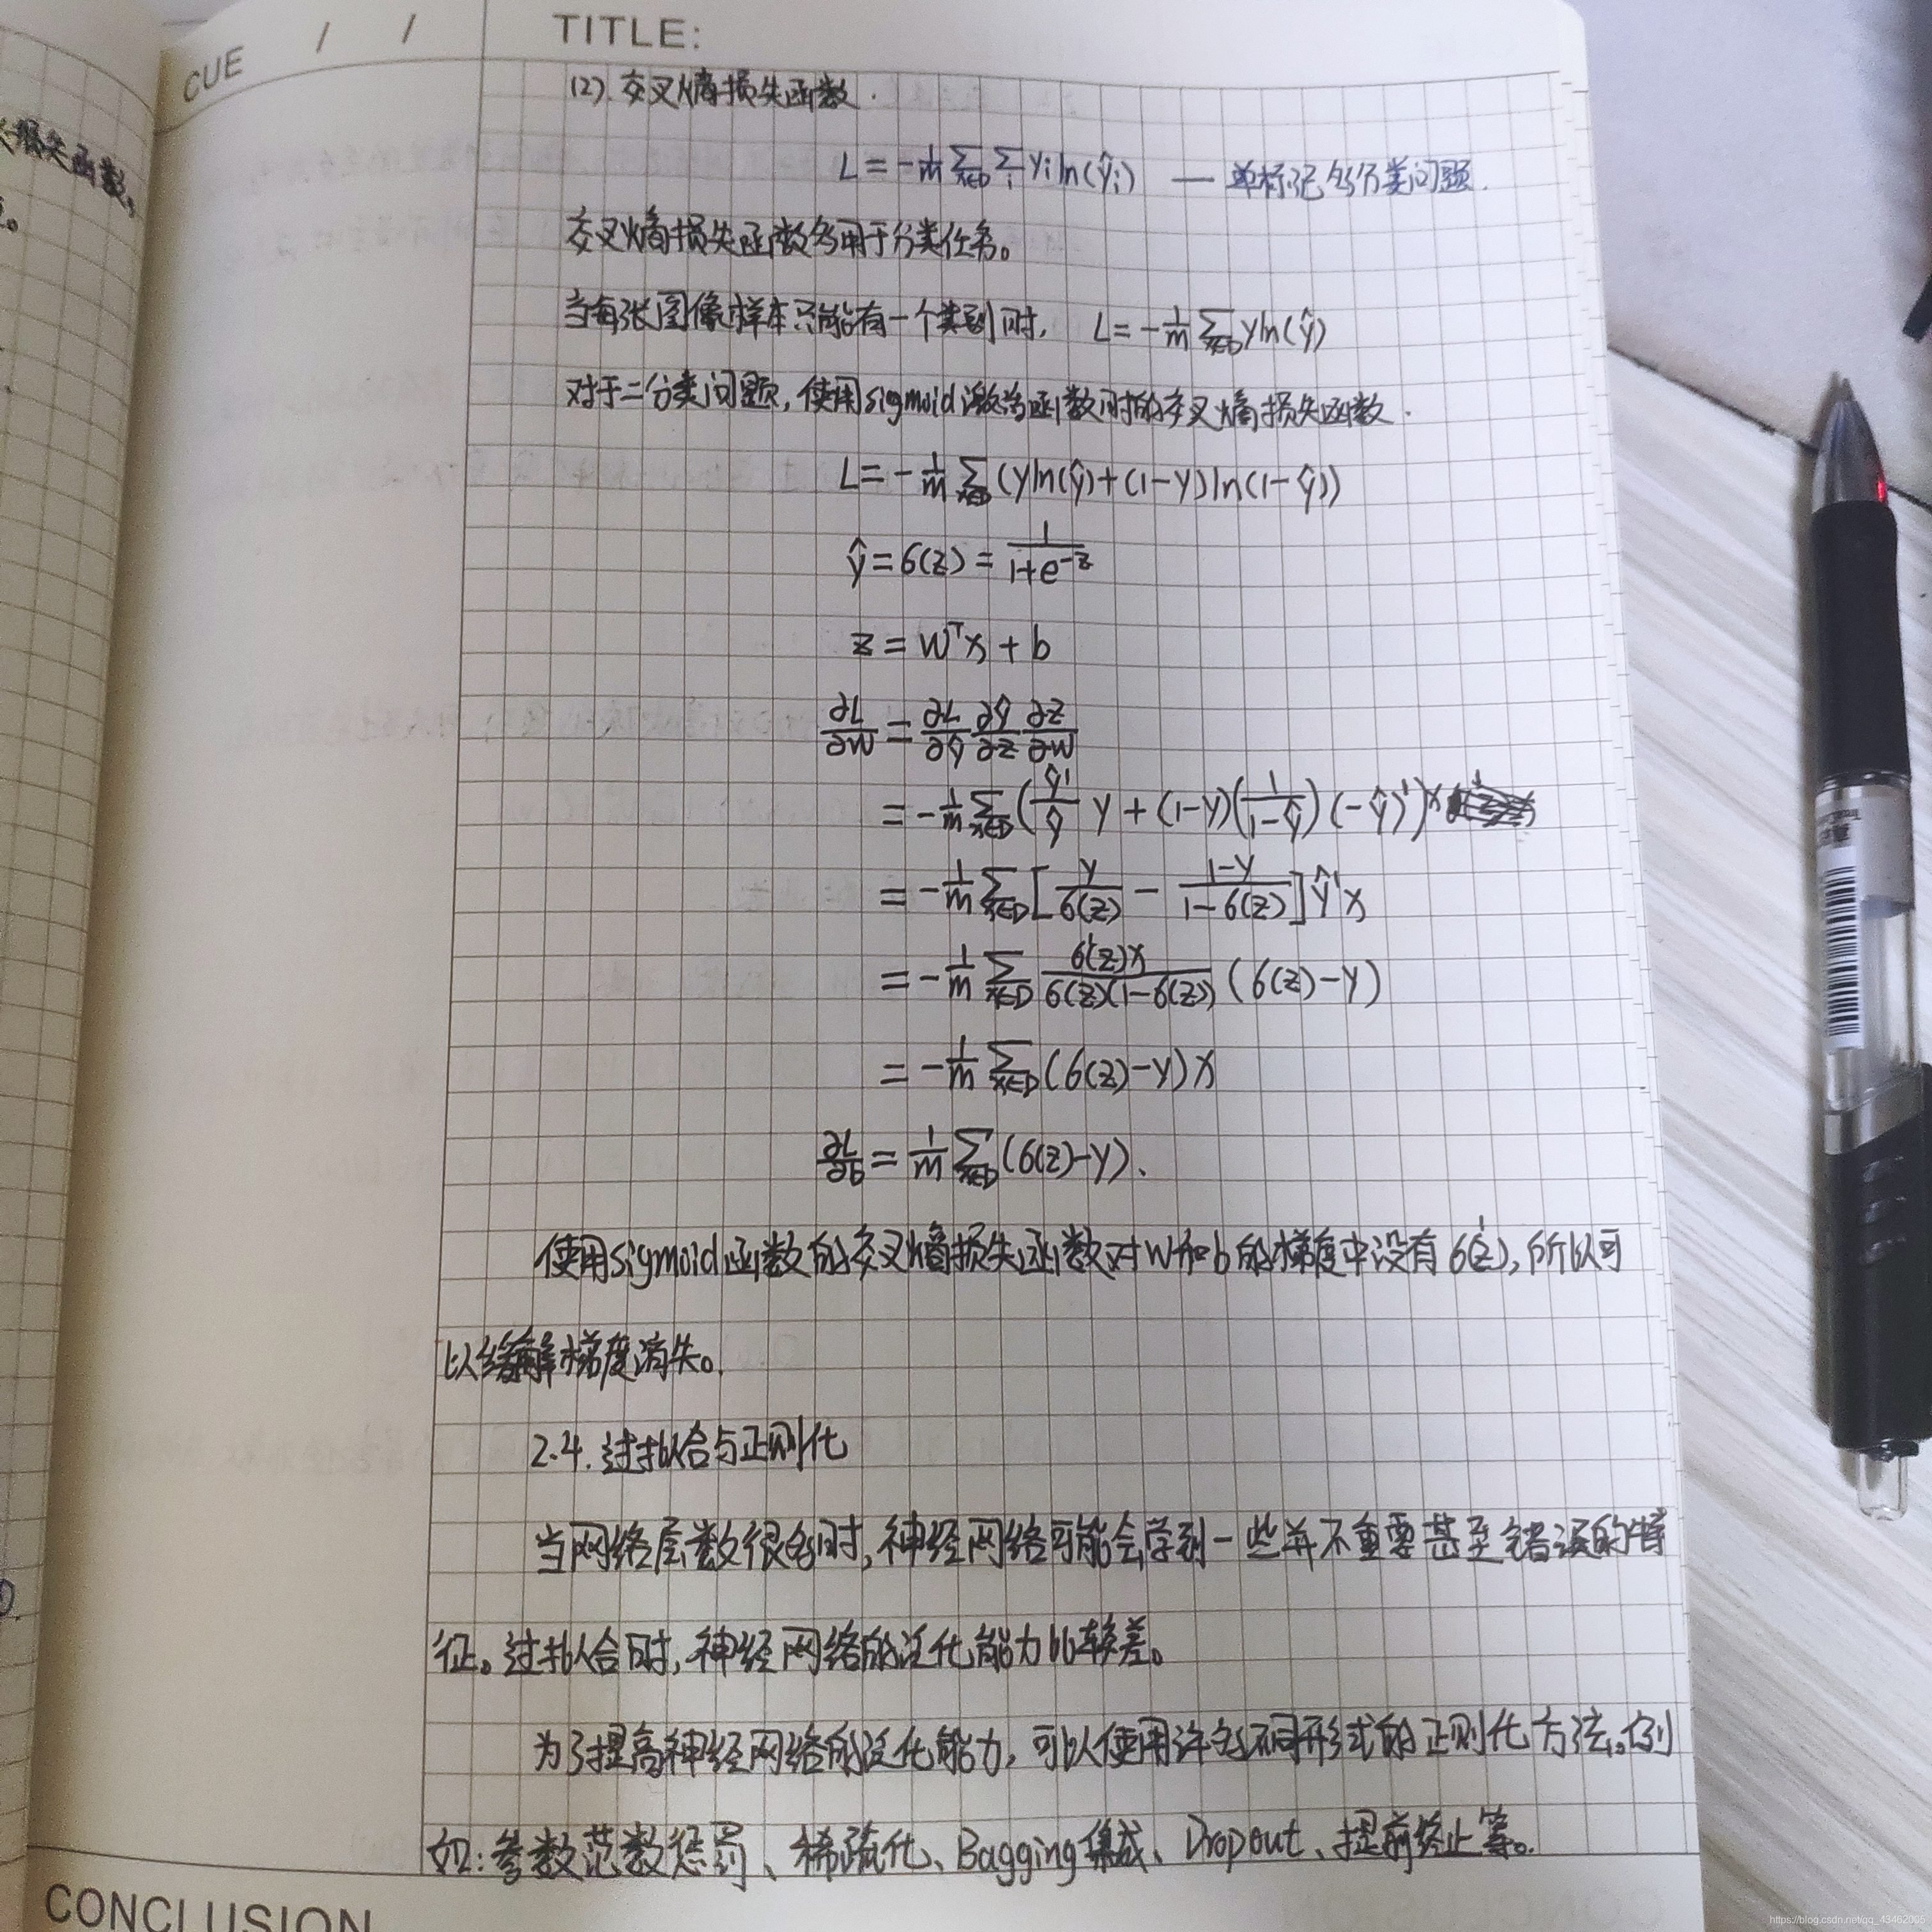 CUE / / TITLE:
损失函数,
(2). 交叉熵损失函数.
L = -1/m ∑_{x∈D} ∑_i y_i ln(ŷ_i) — 单标记多分类问题.
交叉熵损失函数多用于分类任务。
当每张图像样本只能有一个类别时, L = -1/m ∑_{x∈D} y ln(ŷ)
对于二分类问题, 使用sigmoid激活函数时的交叉熵损失函数.
L = -1/m ∑_{x∈D} (y ln(ŷ) + (1-y) ln(1-ŷ))
ŷ = σ(z) = 1/(1+e^{-z})
z = W^T x + b
∂L/∂W = ∂L/∂ŷ ∂ŷ/∂z ∂z/∂W
= -1/m ∑_{x∈D} (ŷ'/ŷ y + (1-y)(1/(1-ŷ))(-ŷ)')x
= -1/m ∑_{x∈D} [y/σ(z) - (1-y)/(1-σ(z))] ŷ'x
= -1/m ∑_{x∈D} σ'(z)x/(σ(z)(1-σ(z))) (σ(z)-y)
= -1/m ∑_{x∈D} (σ(z)-y)x
∂L/∂b = 1/m ∑_{x∈D} (σ(z)-y).
使用sigmoid函数的交叉熵损失函数对W和b的梯度中没有σ'(z), 所以可
以缓解梯度消失。
2.4. 过拟合与正则化
当网络层数很多时, 神经网络可能会学到一些并不重要甚至错误的特
征。过拟合时, 神经网络的泛化能力比较差。
为了提高神经网络的泛化能力, 可以使用许多不同形式的正则化方法。例
如: 参数范数惩罚、稀疏化、Bagging集成、Dropout、提前终止等。
CONCLUSION
https://blog.csdn.net/qq_43462005